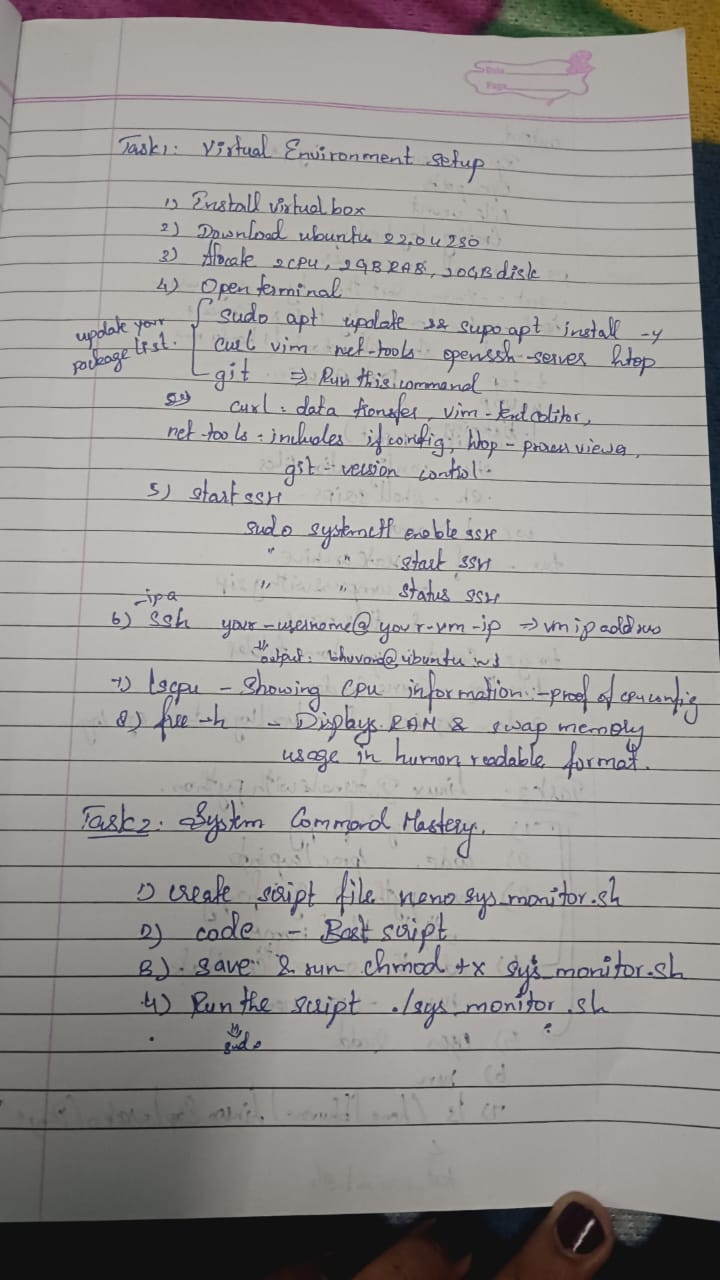 Date
Page
Task1: Virtual Environment setup
1) Install virtual box
2) Download ubuntu 22.04 ISO
3) Alocate 2CPU, 2GB RAM, 20GB disk
4) Open terminal
update your package list.
sudo apt update && supo apt install -y
curl vim net-tools openssh-server htop
git ⇒ Run this command
curl = data transfer, vim - text editor,
net-tools = includes ifconfig, htop - process viewer,
git = version control
5) start SSH
sudo systemctl enable SSH
" " start SSH
" " status SSH
-ip a
6) ssh your-username@your-vm-ip ⇒ vm ip address
output: @ubuntu
7) lscpu - Showing CPU information :-proof of cpu config
8) free -h - Displays RAM & swap memory
usage in human readable format.
Task2: System Command Mastery.
1) create script file nano sys_monitor.sh
2) code - Bast script
3). save & run chmod +x sys_monitor.sh
4) Run the script ./sys_monitor.sh
sudo